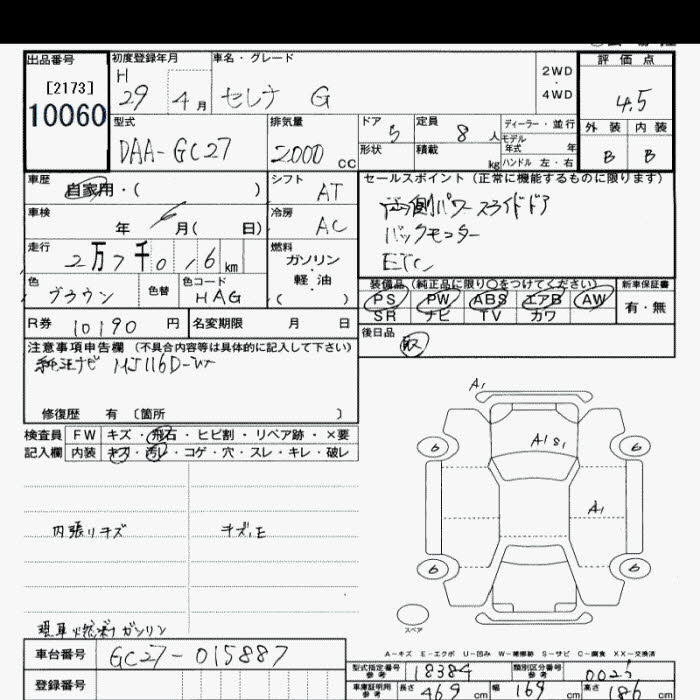 出品番号 初度登録年月 車名・グレード 2WD・4WD 評価点
[2173] H 29 4月 セレナ G 4.5
10060
型式 排気量 ドア 定員 ディーラー・並行 外装 内装
DAA-GC27 2000cc 5 8人 モデル年式 年 B B
形状 積載 kg ハンドル 左・右
車歴 自家用・( ) シフト AT セールスポイント(正常に機能するものに限ります)
車検 年 月( 日) 冷房 AC 両側パワースライドドア
バックモニター
走行 2万7千016km 燃料 ETC
ガソリン・軽油( )
色 ブラウン 色替 色コード HAG
装備品(純正品に限り○をつけてください) 新車保証書
PS PW ABS エアB AW 有・無
SR ナビ TV カワ
R券 10190円 名変期限 月 日 後日品
取
注意事項申告欄(不具合内容等は具体的に記入して下さい)
純正ナビ MJ116D-W
修復歴 有〔箇所 〕
検査員 FW キズ・飛石・ヒビ割・リペア跡・×要
記入欄 内装 キズ・汚レ・コゲ・穴・スレ・キレ・破レ
A1
A1 S1
6 6
A1
6 6
内張りキズ
スペア
ガソリン
A-キズ E-エクボ U-凹み W-補修跡 S-サビ C-腐食 XX-交換済
車台番号 GC27-015887
型式指定番号 参考 18384 類別区分番号 参考
登録番号 車庫証明用 参考 長さ 469cm 幅 169cm 高さ 186cm